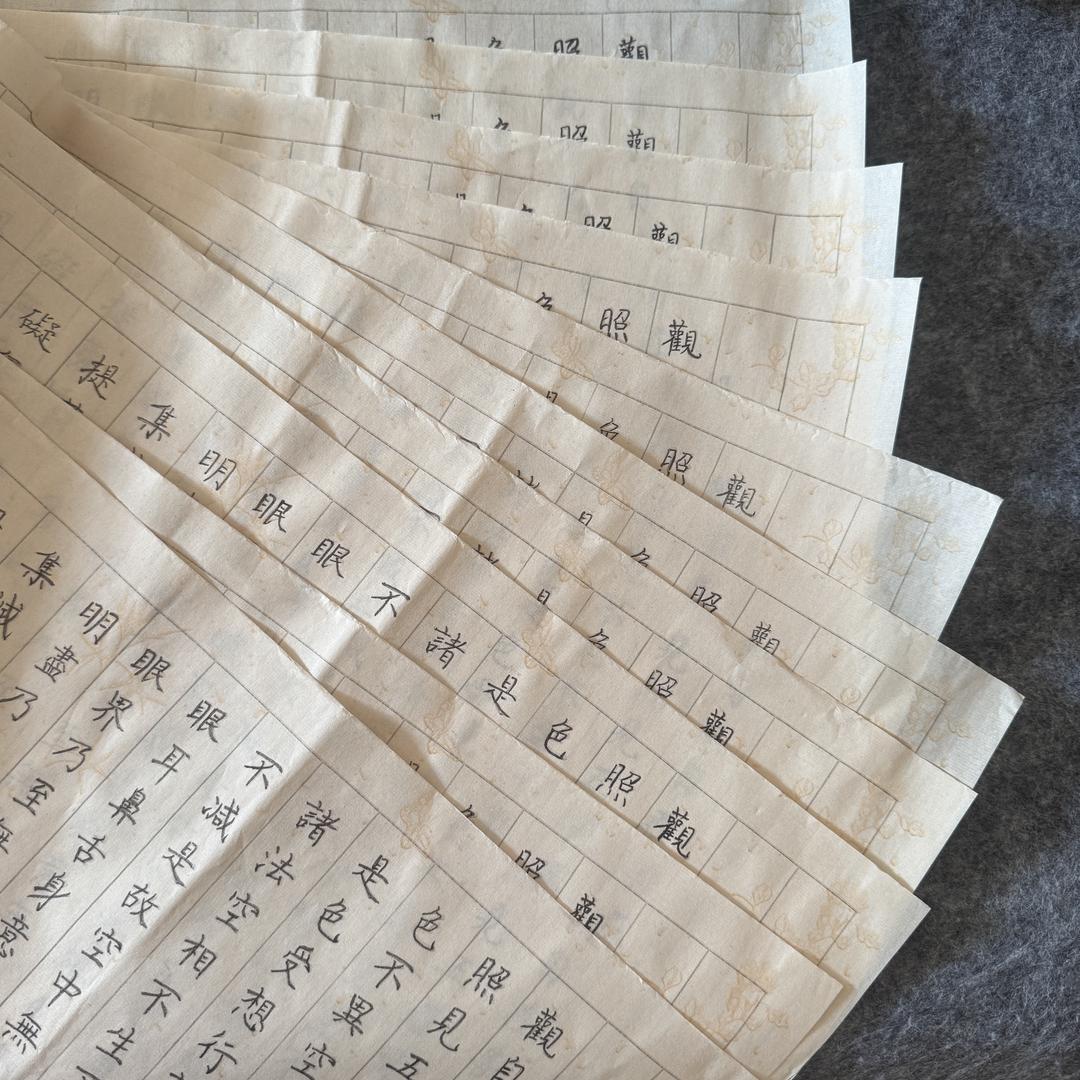 觀
照
觀
照
觀
照
觀
照
色
觀
照
色
觀
照
色
觀
照
色
觀
照
色
是
諸
不
眼
眼
明
集
提
礙
觀
照
觀自
照見五
色不異空
是色受想行
諸法空相不生
不減是故空中無
眼耳鼻舌身意
眼界乃至無
明盡乃
集滅